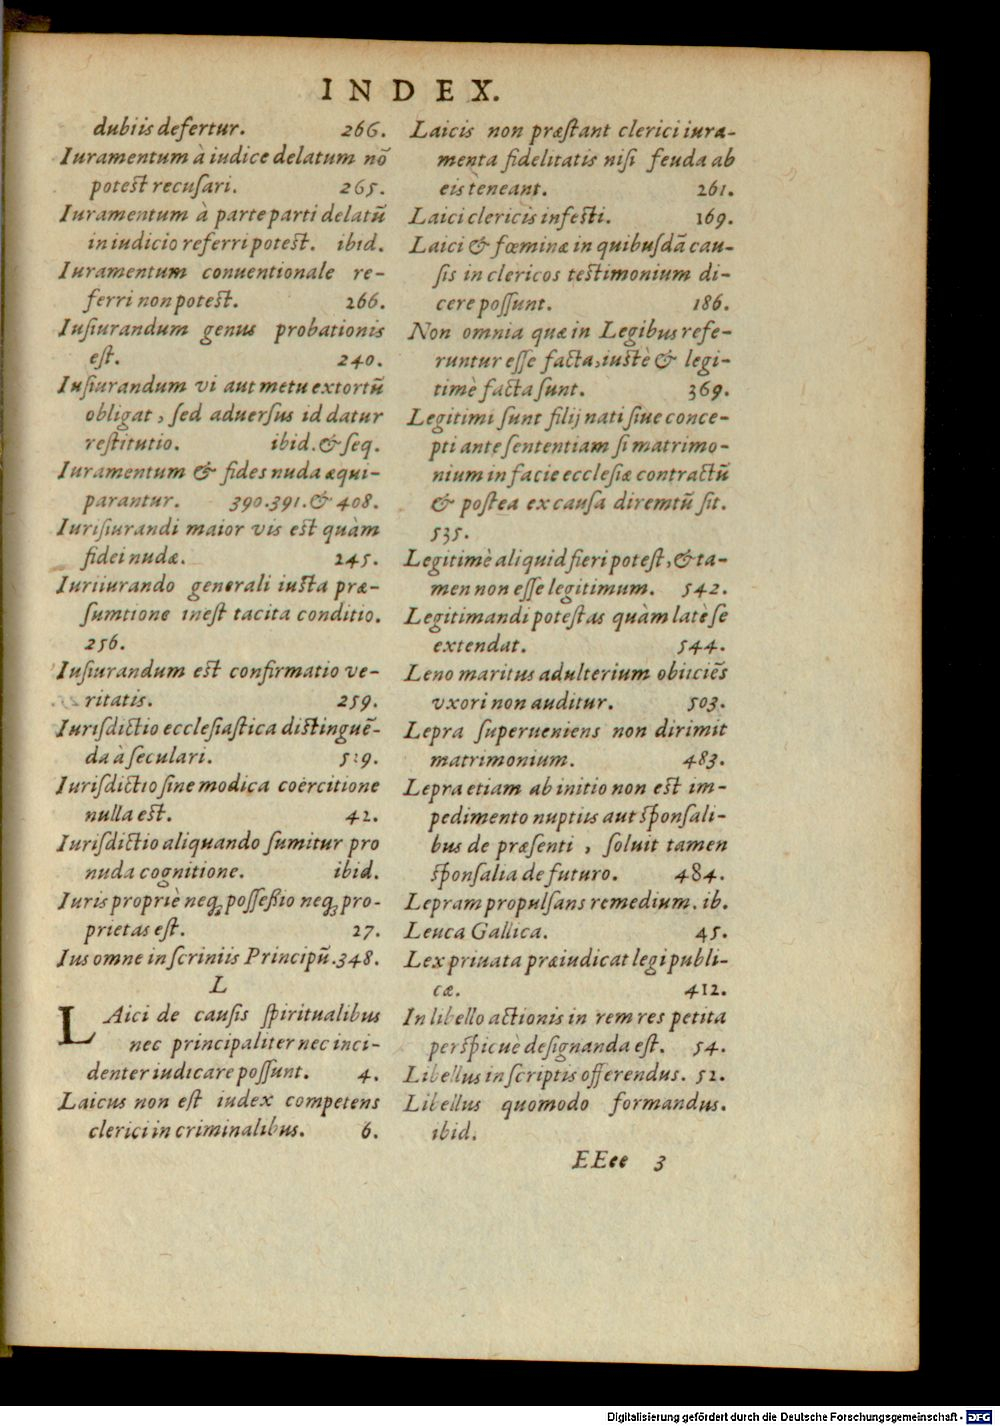 INDEX.
dubiis defertur. 266.
Iuramentum à iudice delatum nō
potest recusari. 265.
Iuramentum à parte parti delatū
in iudicio referri potest. ibid.
Iuramentum conuentionale re-
ferri non potest. 266.
Iusiurandum genus probationis
est. 240.
Iusiurandum vi aut metu extortū
obligat, sed aduersus id datur
restitutio. ibid. & seq.
Iuramentum & fides nuda æqui-
parantur. 390.391.& 408.
Iurisiurandi maior vis est quàm
fidei nudæ. 245.
Iuriiurando generali iusta præ-
sumtione inest tacita conditio.
256.
Iusiurandum est confirmatio ve-
ritatis. 259.
Iurisdictio ecclesiastica distinguē-
da à seculari. 519.
Iurisdictio sine modica coërcitione
nulla est. 42.
Iurisdictio aliquando sumitur pro
nuda cognitione. ibid.
Iuris propriè neq; possessio neq; pro-
prietas est. 27.
Ius omne in scriniis Principū. 348.
L
LAici de causis spiritualibus
nec principaliter nec inci-
denter iudicare possunt. 4.
Laicus non est iudex competens
clerici in criminalibus. 6.
Laicis non præstant clerici iura-
menta fidelitatis nisi feuda ab
eis teneant. 261.
Laici clericis infesti. 169.
Laici & fœminæ in quibusdā cau-
sis in clericos testimonium di-
cere possunt. 186.
Non omnia quæ in Legibus refe-
runtur esse facta, iustè & legi-
timè facta sunt. 369.
Legitimi sunt filij nati siue conce-
pti ante sententiam si matrimo-
nium in facie ecclesiæ contractū
& postea ex causa diremtū sit.
535.
Legitimè aliquid fieri potest, & ta-
men non esse legitimum. 542.
Legitimandi potestas quàm latè se
extendat. 544.
Leno maritus adulterium obiiciēs
vxori non auditur. 503.
Lepra superueniens non dirimit
matrimonium. 483.
Lepra etiam ab initio non est im-
pedimento nuptiis aut sponsali-
bus de præsenti, soluit tamen
sponsalia de futuro. 484.
Lepram propulsans remedium. ib.
Leuca Gallica. 45.
Lex priuata præiudicat legi publi-
cæ. 412.
In libello actionis in rem res petita
perspicuè designanda est. 54.
Libellus in scriptis offerendus. 52.
Libellus quomodo formandus.
ibid.
EEee 3
Digitalisierung gefördert durch die Deutsche Forschungsgemeinschaft - DFG